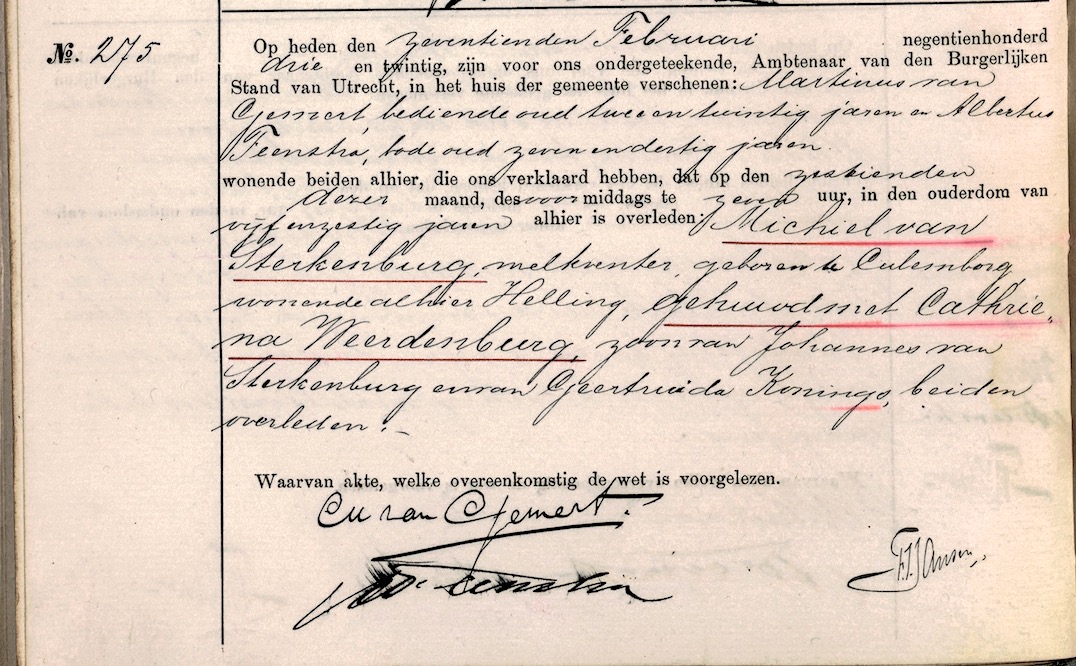 No. 275
Op heden den zeventienden Februari negentienhonderd
drie en twintig, zijn voor ons ondergeteekende, Ambtenaar van den Burgerlijken
Stand van Utrecht, in het huis der gemeente verschenen: Martinus van
Gemert, bediende oud twee en twintig jaren en Albertus
Feenstra, bode oud zeven en dertig jaren.
wonende beiden alhier, die ons verklaard hebben, dat op den zestienden
dezer maand, des voormiddags te zeven uur, in den ouderdom van
vijf en zestig jaren alhier is overleden: Michiel van
Sterkenburg, melkventer, geboren te Culemborg
wonende alhier Helling, gehuwd met Cathrie„
na Weerdenburg, zoon van Johannes van
Sterkenburg en van Geertruida Konings, beiden
overleden.–
Waarvan akte, welke overeenkomstig de wet is voorgelezen.
M van Gemert.
Feenstra
F.J. Jansen